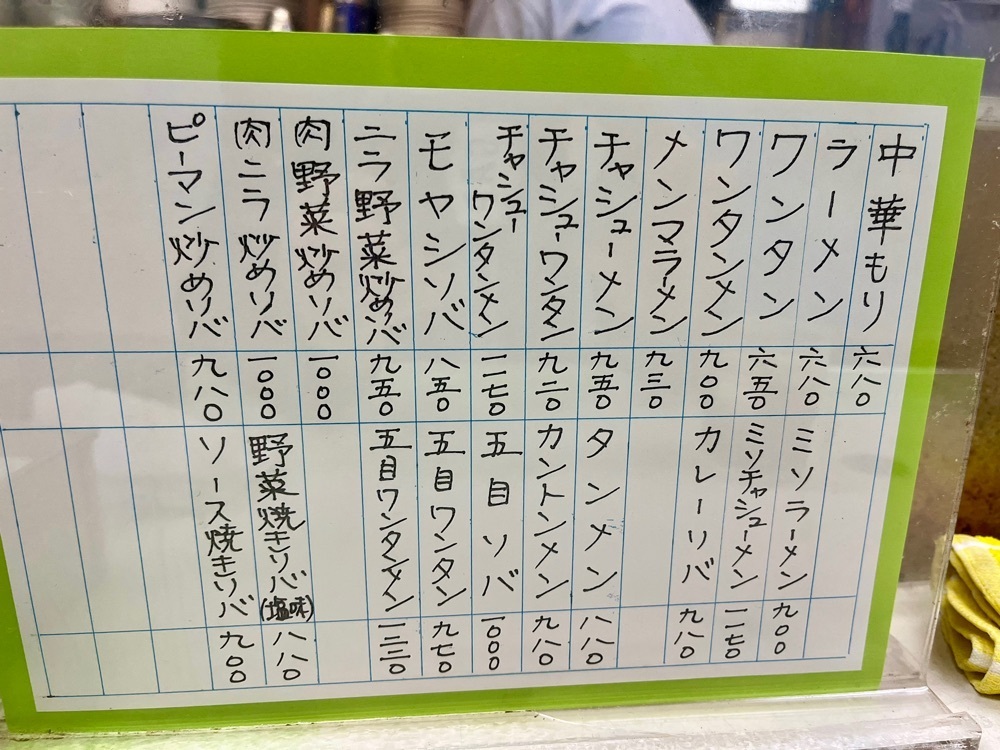 中華もり 六八〇
ラーメン 六八〇
ワンタン 六五〇
ワンタンメン 九〇〇
メンマラーメン 九三〇
チャシューメン 九五〇
チャシューワンタン 九二〇
チャシューワンタンメン 一一七〇
モヤシソバ 八五〇
ニラ野菜炒めソバ 九五〇
肉野菜炒めソバ 一〇〇〇
肉ニラ炒めソバ 一〇〇〇
ピーマン炒めソバ 九八〇
ミソラーメン 九〇〇
ミソチャシューメン 一一七〇
カレーソバ 九八〇
タンメン 八八〇
カントンメン 九八〇
五目ソバ 一〇〇〇
五目ワンタン 九七〇
五目ワンタンメン 一二二〇
野菜焼きソバ(塩味) 八八〇
ソース焼きソバ 九〇〇